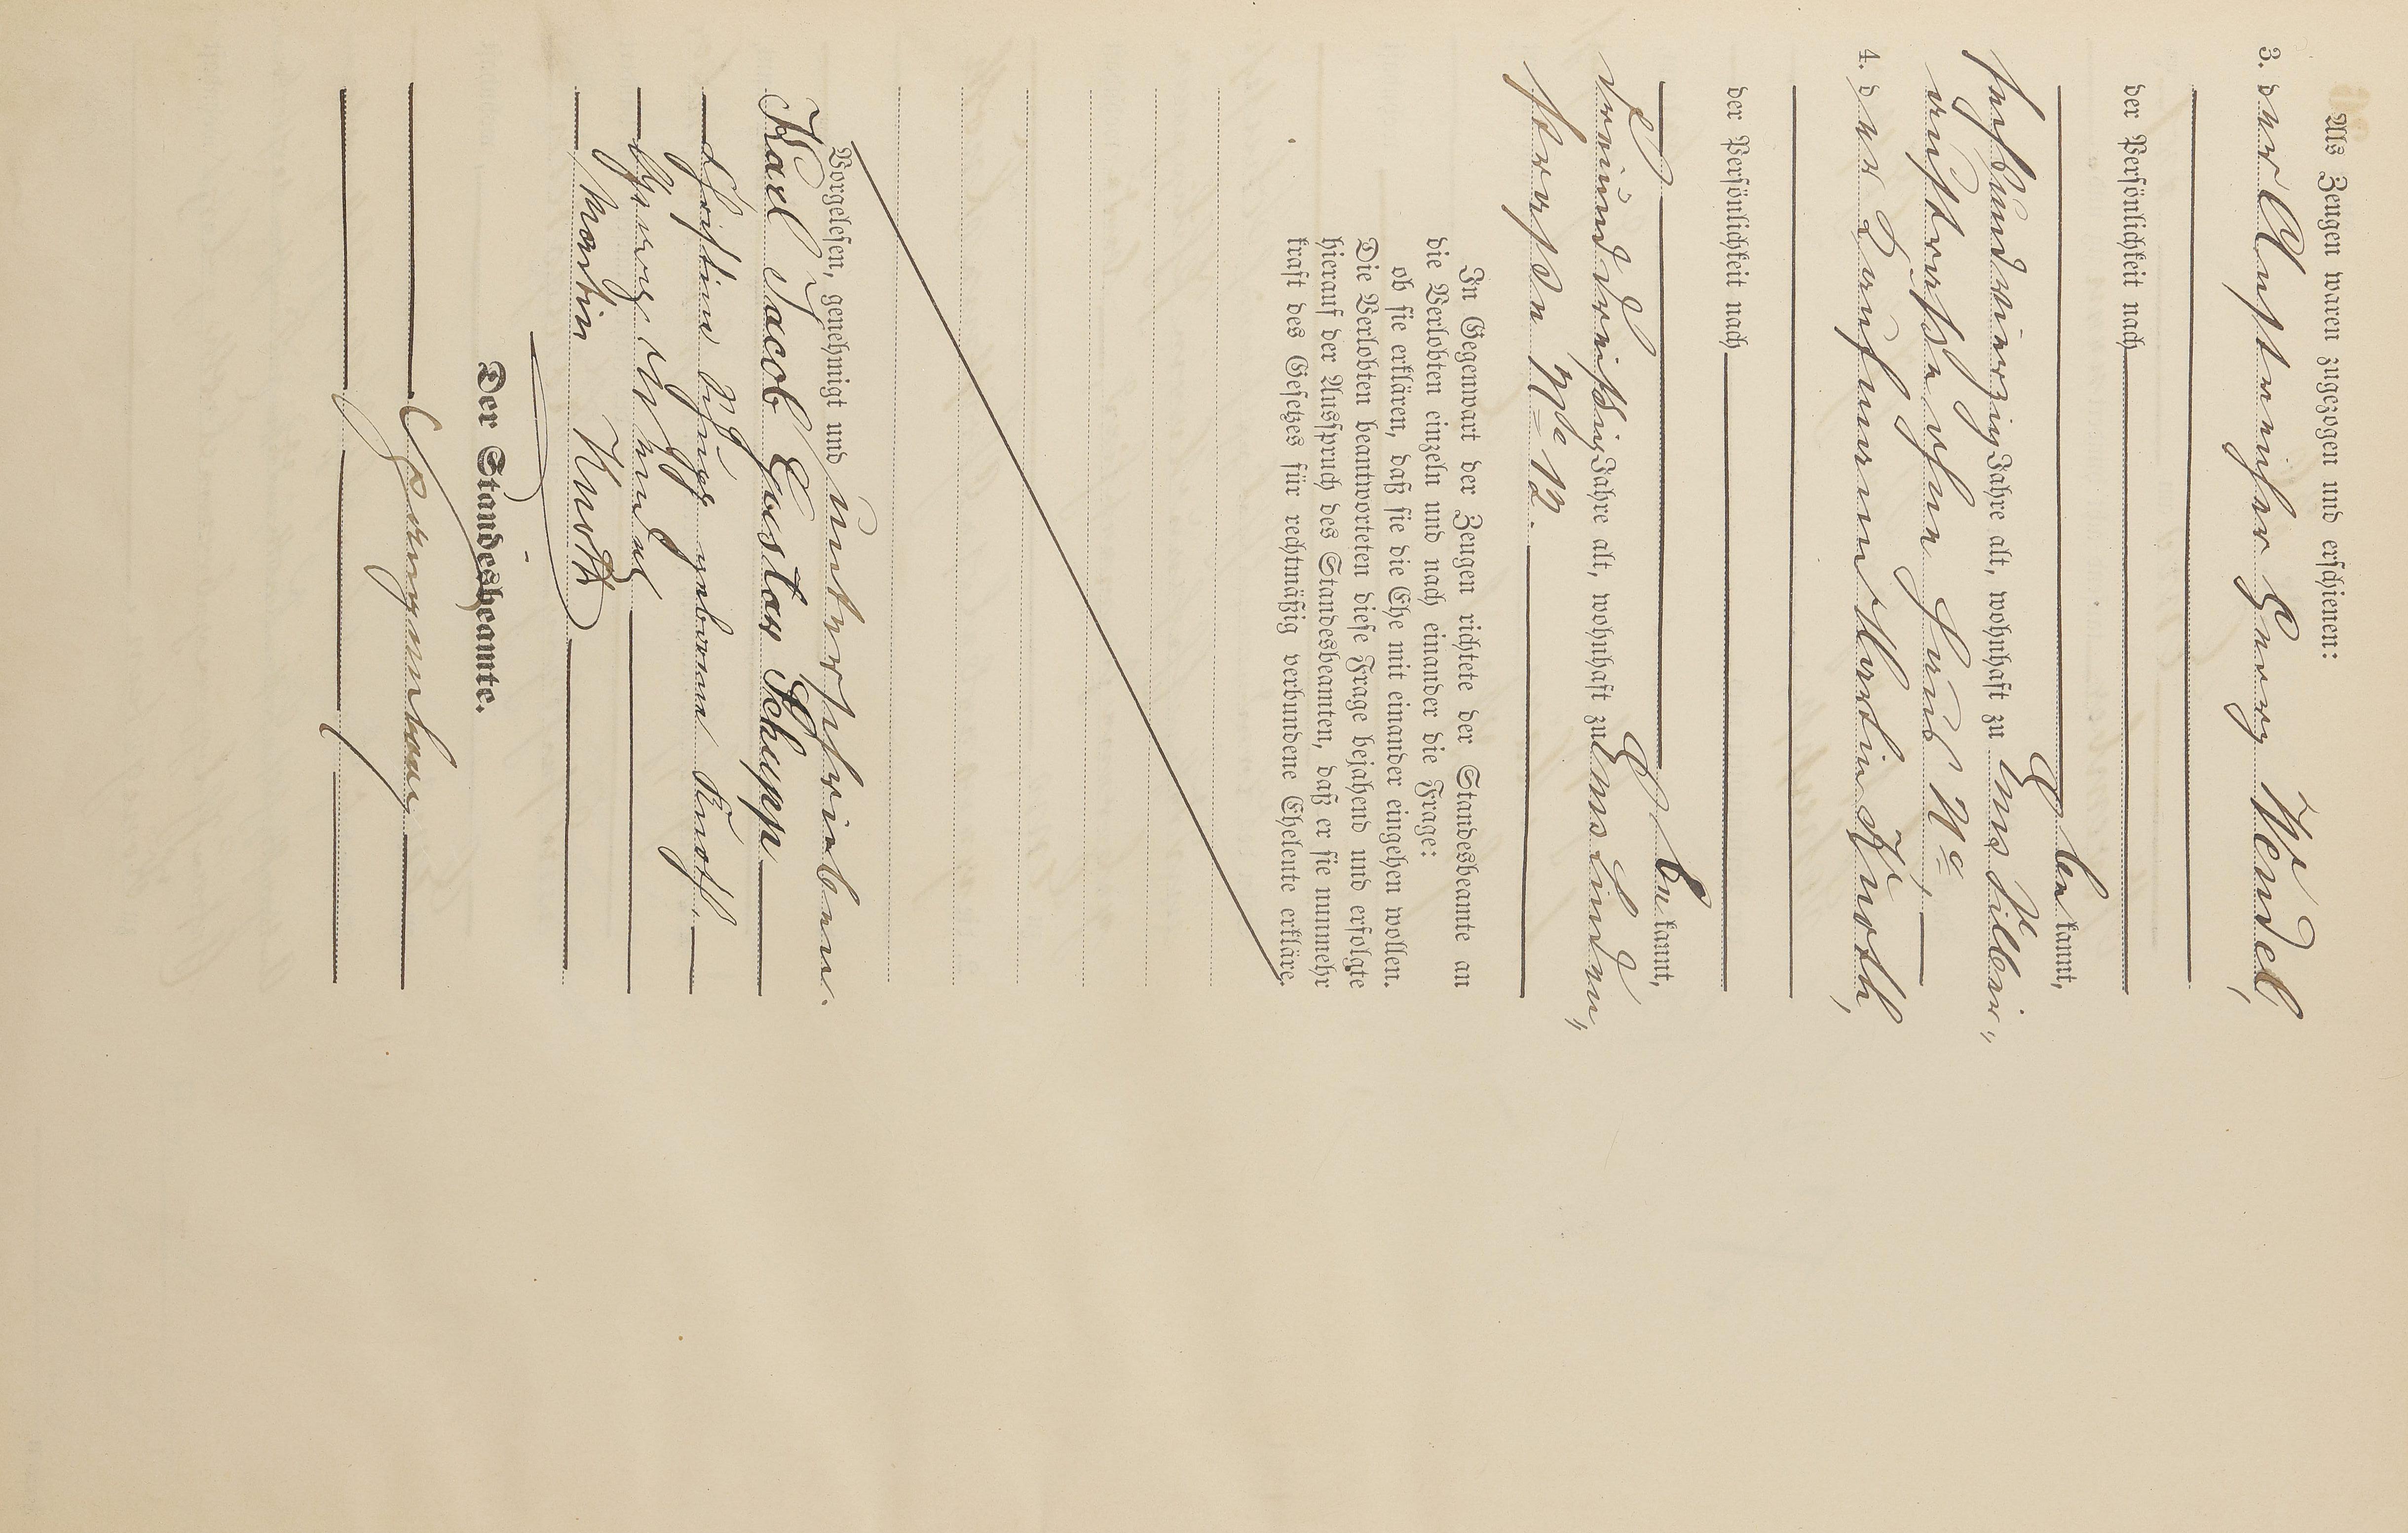 Als Zeugen waren zugezogen und erschienen:
3. der Anstreicher Georg Wendel,
der Persönlichkeit nach
be kannt,
sechsundvierzig Jahre alt, wohnhaft zu Ems Silber-
austraße ohne Haus No,
4. der Kaufmann Martin Knoth,
der Persönlichkeit nach
be kannt,
dreiunddreißig Jahre alt, wohnhaft zu Ems Linden-
straße No 12.
In Gegenwart der Zeugen richtete der Standesbeamte an
die Verlobten einzeln und nach einander die Frage:
ob sie erklären, daß sie die Ehe mit einander eingehen wollen.
Die Verlobten beantworteten diese Frage bejahend und erfolgte
hierauf der Ausspruch des Standesbeamten, daß er sie nunmehr
kraft des Gesetzes für rechtmäßig verbundene Eheleute erkläre.
Vorgelesen, genehmigt und unterschrieben.
Karl Jacob Gustav Schupp
Christine Schupp geborene Knoth.
Georg Wendel
Martin Knoth
Der Standesbeamte.